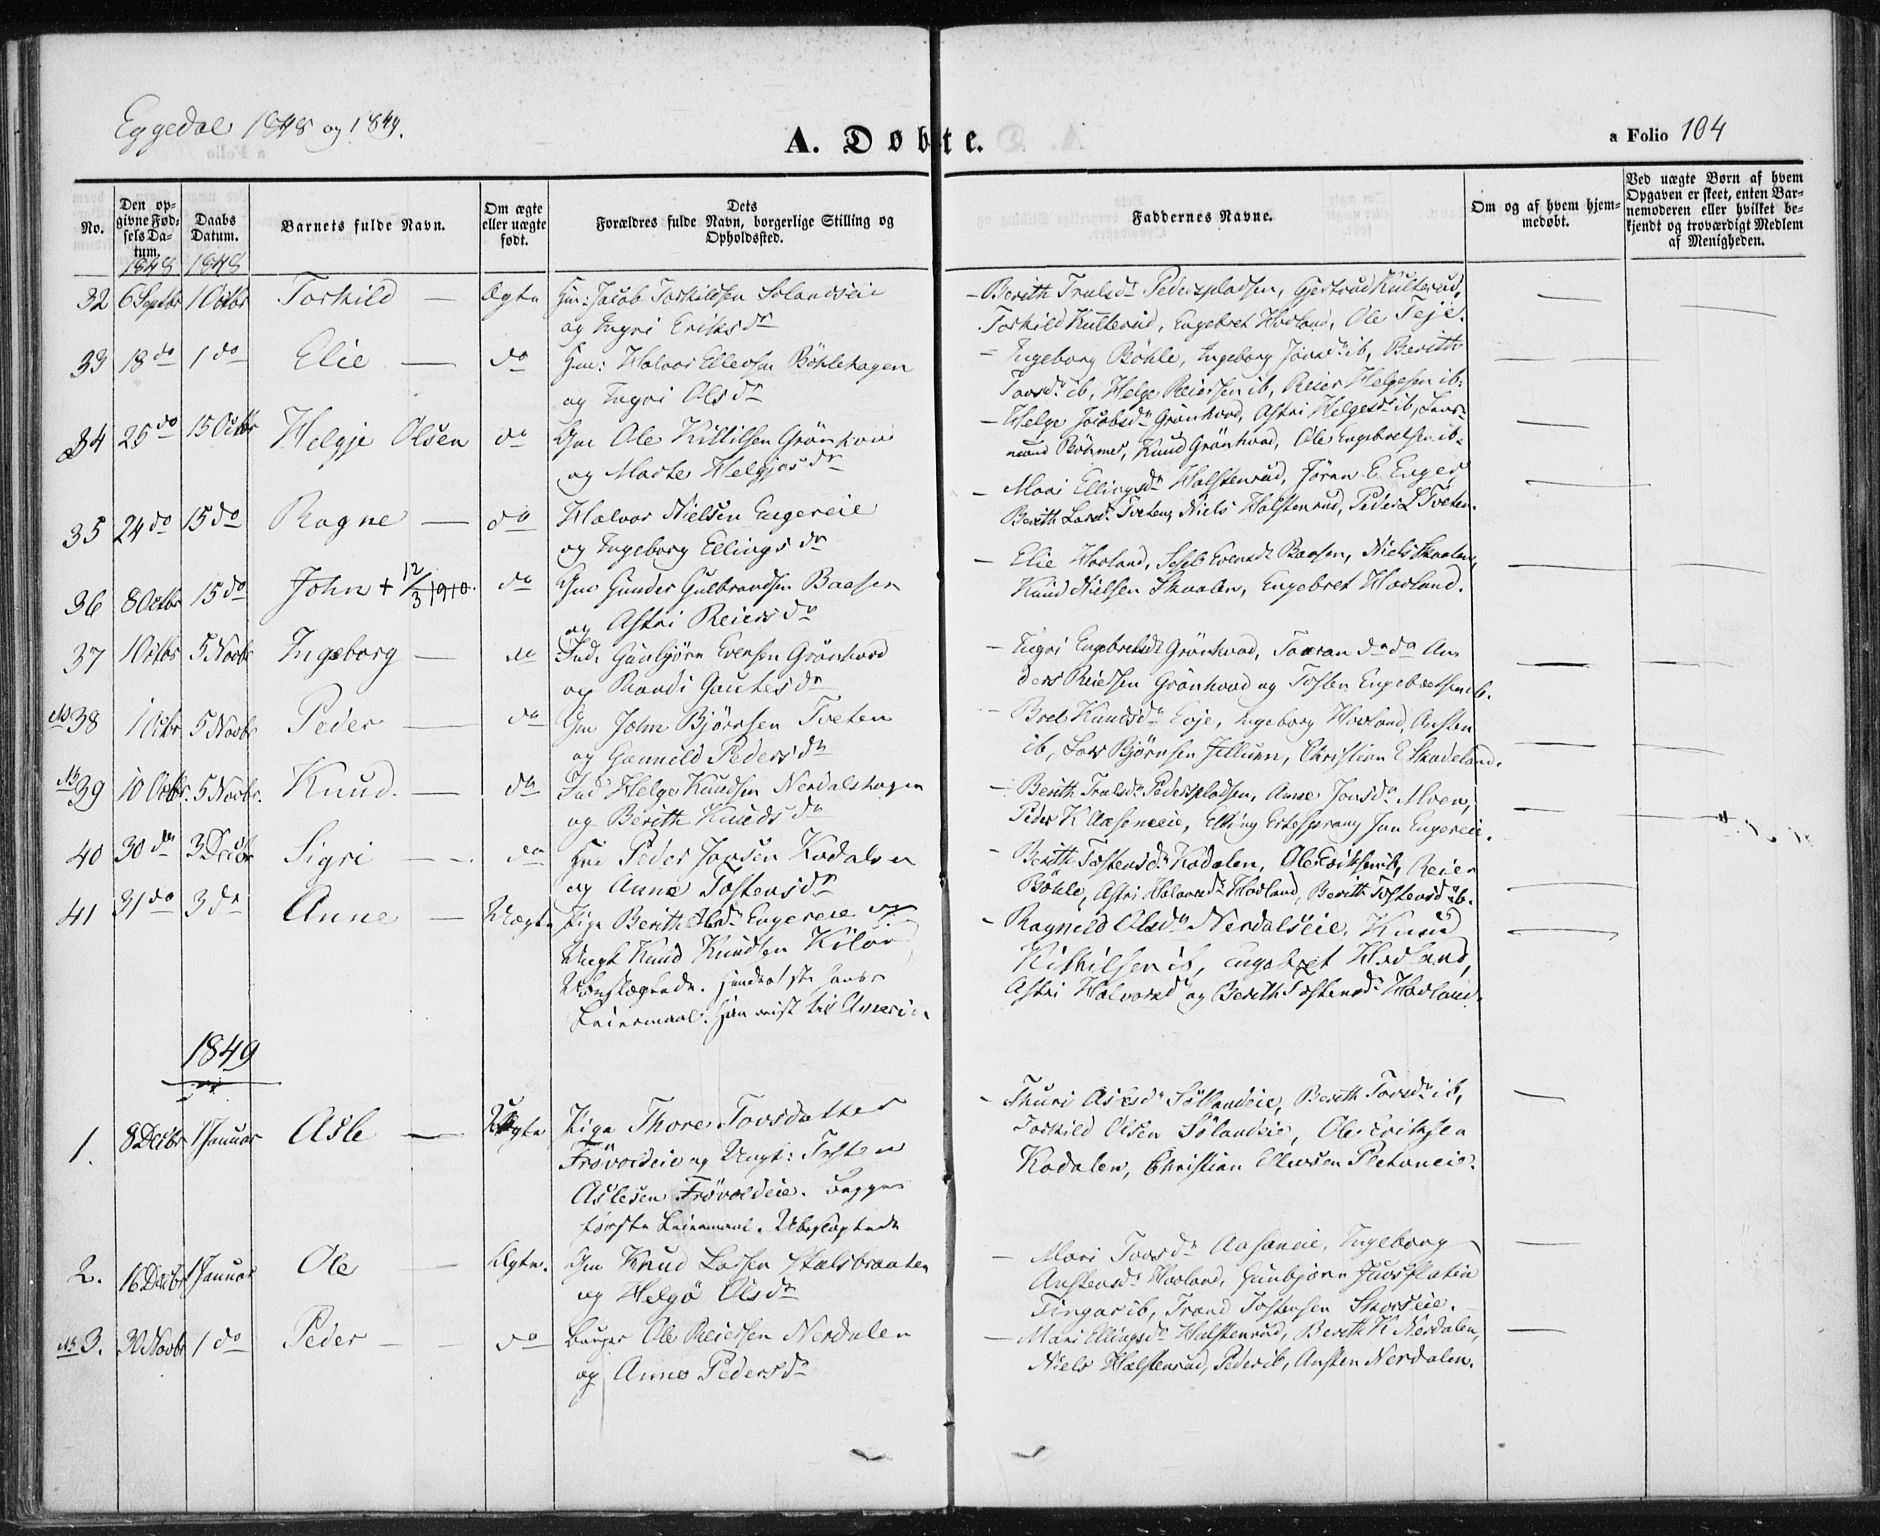 Eggedal 1848 og 1849.
A. Døbte.
a Folio 104
No.
Den op-
givne Fød-
sels Da-
tum.
1848
Daabs
Datum.
1848
Barnets fulde Navn.
Om ægte
eller uægte
født.
Dets
Forældres fulde Navn, borgerlige Stilling og
Opholdssted.
Faddernes Navne.
Om og af hvem hjem-
medøbt.
Ved uægte Børn af hvem
Opgaven er skeet, enten Bar-
nemoderen eller hvilket be-
kjendt og troværdigt Medlem
af Menigheden.
32 6 Septbr 1 Octbr Torkild — Ægte Gm: Jacob Torkildsen Solandseie
og Ingri Eriksdr
— Berith Trulsdr Pederspladsen, Gjertrud Kulterud,
Torkild Kulterud, Engebret Hovland, Ole Teje.
33 18 do 1 do Elie — do Gm: Halvor Ellevsen Bøhlehagen
og Ingri Olsdr
— Ingeborg Bøhle, Ingeborg Jonsdr ib, Berith
Tovsdr ib, Helge Reiersen ib, Reier Helgesen ib.
34 25 do 15 Octbr Helgje Olsen do Gm Ole Kittilsen Grønhovd
og Marte Helgjesdr
— Helge Jacobsdr Grønhovd, Astri Helgesdr ib,
Knud Grønhovd, Ole Engebretsen ib.
35 24 do 15 do Ragne — do Halvor Nielsen Engereie
og Ingeborg Ellingsdr
— Mari Ellingsdr Halstenrud, Jøran E. Enger
Berith Larsdr Tveten, Niels Halstenrud, Peder L Tveten.
36 8 Octbr 15 do John + 12/3 1910. do Gm Gunder Gulbrandsen Baasen
og Astri Reiersdr
— Elie Hovland, Sesel Evensdr Baasen, Niels Skaalen,
Knud Nielsen Skaalen, Engebret Hovland.
37 1 Octbr 5 Novbr Ingeborg — do Ind. Gunbjørn Evensen Grønhovd
og Randi Gautesdr
— Ingri Engebretsdr Grønhovd, Taaran do do An-
ders Reiersen Grønhovd og Tosten Engebretsen ib.
No 38 1 Octbr 5 Novbr Peder — do Gm John Bjørnsen Tveten
og Gunnild Pedersdr
— Bret Knudsdr Eoje, Ingeborg Hovland, Austen
ib, Lars Bjørnsen Jellum, Christian E Skadeland.
No 39 10 Octbr 5 Novbr. Knud. — do Ind Helge Knudsen Nerdalshagen
og Berith Knudsdr
— Berith Trulsdr Pederspladsen, Anne Jonsdr Moen,
Peder K Aasoneeie, Elling Ertesprang, Jon Engereie.
40 30 do 3 Decbr Sigri — do Gm Peder Jonsen Kodalen
og Anne Tostensdr
— Berith Tostensdr Kodalen, Ole Eriksen ib, Reier
Bøhle, Astri Halvorsdr Hovland, Berith Tostensdr ib.
41 31 do 3 do Anne — Uægte Pige Berith Olsdr Engereie og
Ungk Knud Knudsen
Ubeslægtede. hendes 1ste hans
Leiermaal. han reist til America
— Ragnild Olsdr Nerdalseie, Knud
Kittilsen ib, Engebret Hovland,
Astri Halvorsdr og Berith Tostensdr Hovland.
1849
1. 8 Decbr 1 Januar Asle — Uægte Pige Thore Tovsdatter
Frøvoldeie og Ungk: Tosten
Aslesen Frøvoldeie. begges
første Leiermaal. Ubeslægtede
— Thuri Aslesdr Sølandeie, Berith Tovsdr ib,
Torkild Olsen Sølandeie, Ole Eriksen
Kodalen, Christian Ellevsen
2. 16 Decbr 1 Januar Ole — Ægte. Gm Knud Larsen Halsbraaten
og Helgø Olsdr
— Mari Tovsdr Aasoneie, Ingeborg
Austensdr Hovland, Gunbjørn
ib, Trond Tostensen
No 3. 30 Novbr 1 do Peder — do Ole Reiersen Nerdalen
og Anne Pedersdr
— Mari Ellingsdr Halstenrud, Berith K Nerdalen,
Niels Halstenrud, Peder ib, Austen Nerdalen.